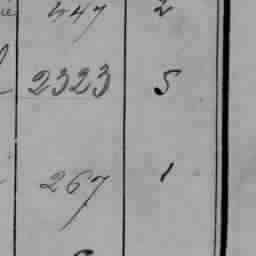 447 2
2323 5
267 1